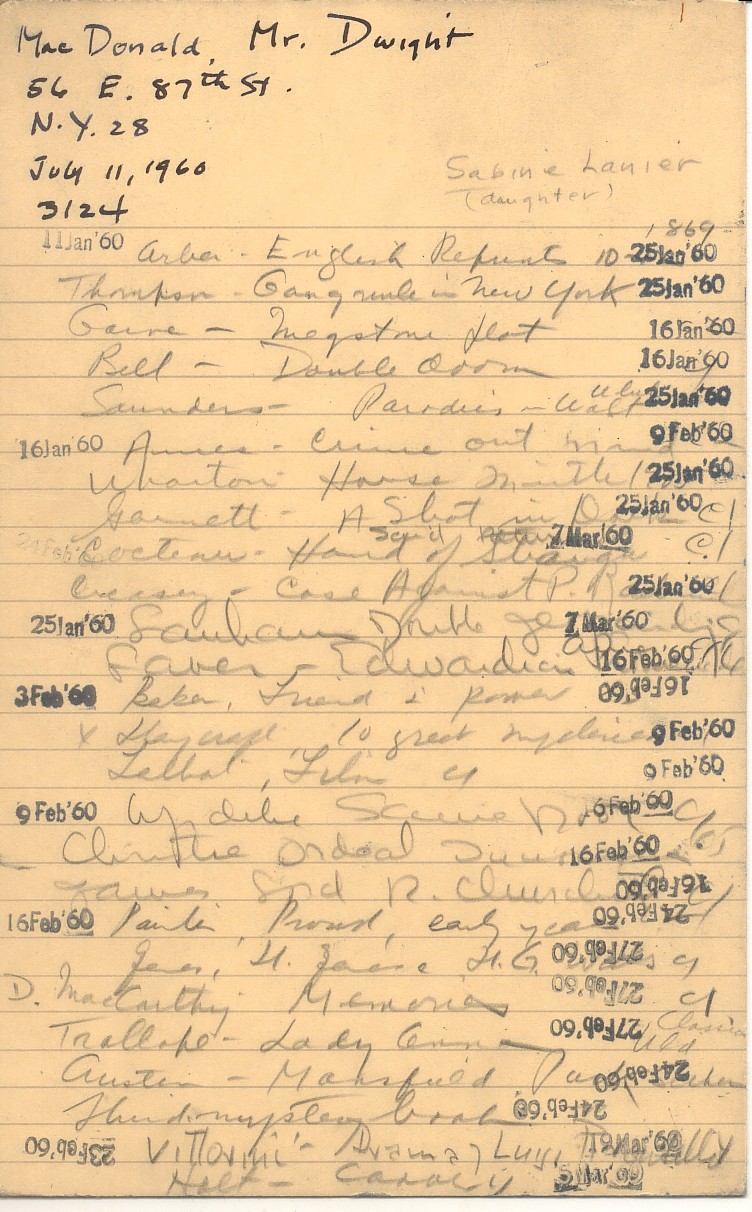 MacDonald, Mr. Dwight
56 E. 87th St.
N.Y. 28
July 11, 1960
Sabine Lanier
(daughter)
3124
1869
11 Jan '60 Arber - English Reprints 10 25 Jan '60
Thompson - Gang rule in New York 25 Jan '60
Garve - Megstone Plot 16 Jan '60
Bell - Double Doom 16 Jan '60
Saunders - Parodies - Walt Whit 25 Jan '60
16 Jan '60 Ames - Crime out mind 9 Feb '60
Wharton House Mirth 25 Jan '60
Garnett - A Shot in Dark 25 Jan '60 C1
24 Feb Cocteau - Hand of Strang 7 Mar '60 C1
Creasey - Case Against P. 25 Jan '60
25 Jan '60 Lanham Double 7 Mar '60
Laver - Edwardian 16 Feb '60
3 Feb '60 Baker, Friend 2 power 16 Feb '60
x Haycraft 10 great mysteries 9 Feb '60
Talbot, Film C1 9 Feb '60
9 Feb '60 Wyndike Science 16 Feb '60 C1
Christie Ordeal 16 Feb '60
James Lord R. Churchill 16 Feb '60 C1
16 Feb '60 Painter, Proust, early years 24 Feb '60
James, H. James & H.G. Wells C1 27 Feb '60
D. MacCarthy Memories C1 27 Feb '60
Trollope - Lady Anna 27 Feb '60 Classics
Austen - Mansfield Park 24 Feb '60
Third mystery book 24 Feb '60
23 Feb '60 Vittorini - Drama of Luigi Pirandello 16 Mar '60
Holt - 5 Mar '60